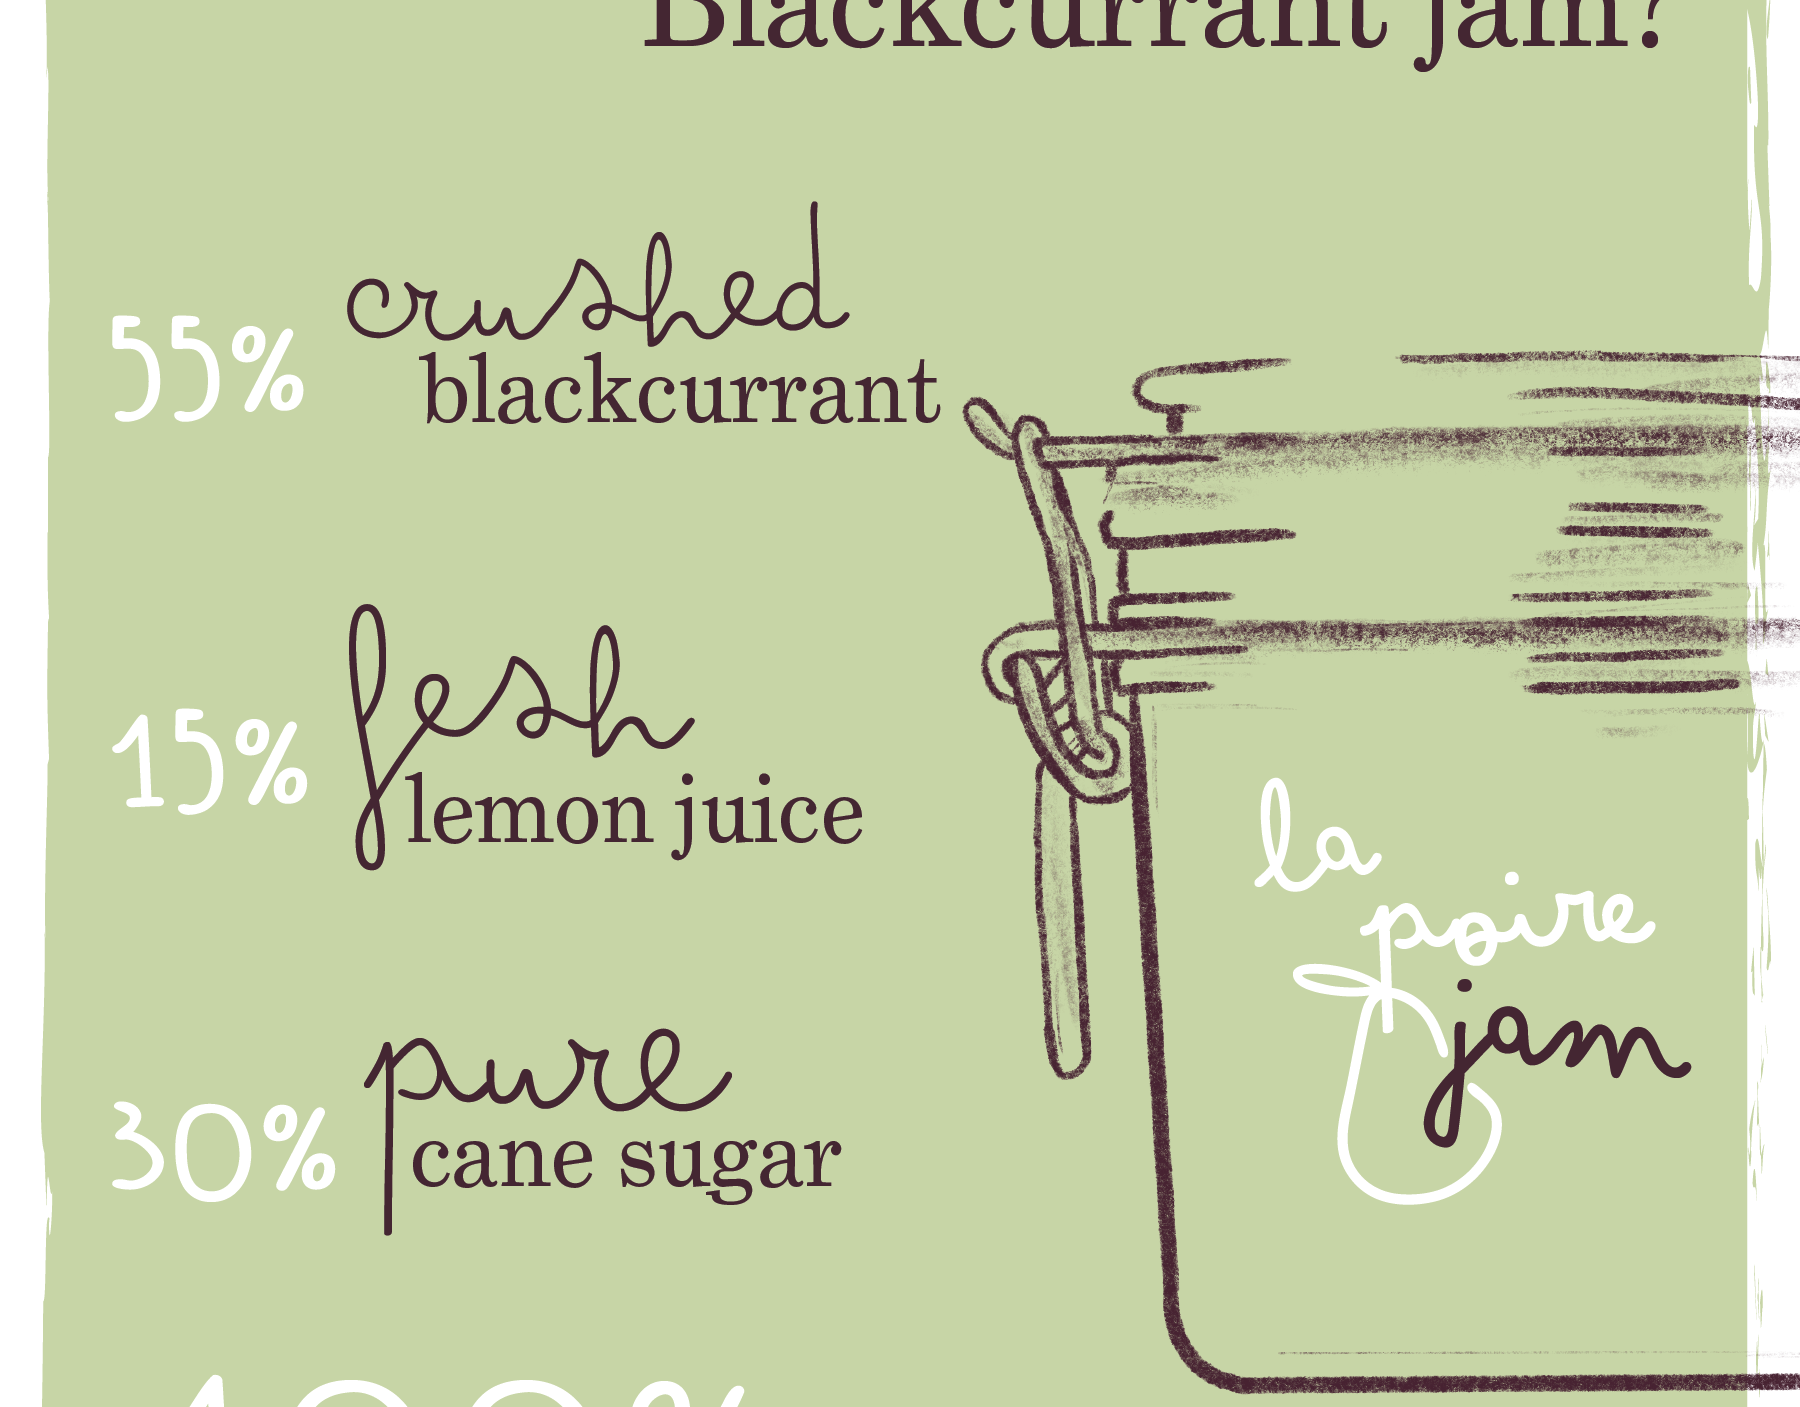 Blackcurrant jam?
55% crushed
blackcurrant
15% fesh
lemon juice
30% pure
cane sugar
la
poire
jam
100%